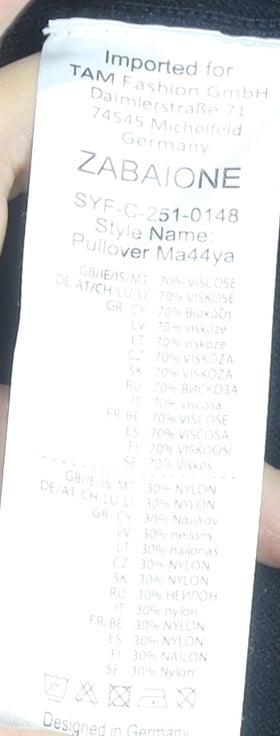 Imported for
TAM Fashion GmbH
Daimlerstraße 71
74545 Michelfeld
Germany
ZABAIONE
SYF-C-251-0148
Style Name:
Pullover Ma44ya
GB/IE/IS/MT 70% VISCOSE
DE/AT/CH/LU/LI 70% VISKOSE
GR/CY 70% Βισκόζη
LV 70% viskoze
LT 70% viskozė
CZ 70% VISKÓZA
SK 70% VISKÓZA
RU 70% ВИСКОЗА
IT 70% viscosa
FR/BE 70% VISCOSE
ES 70% VISCOSA
FI 70% VISKOOSI
SE 70% Viskos
GB/IE/IS/MT 30% NYLON
DE/AT/CH/LU/LI 30% NYLON
GR/CY 30% Ναυλον
LV 30% neilons
LT 30% nailonas
CZ 30% NYLON
SK 30% NYLON
RU 30% НЕЙЛОН
IT 30% nylon
FR/BE 30% NYLON
ES 30% NYLON
FI 30% NAILON
SE 30% Nylon
Designed in Germany